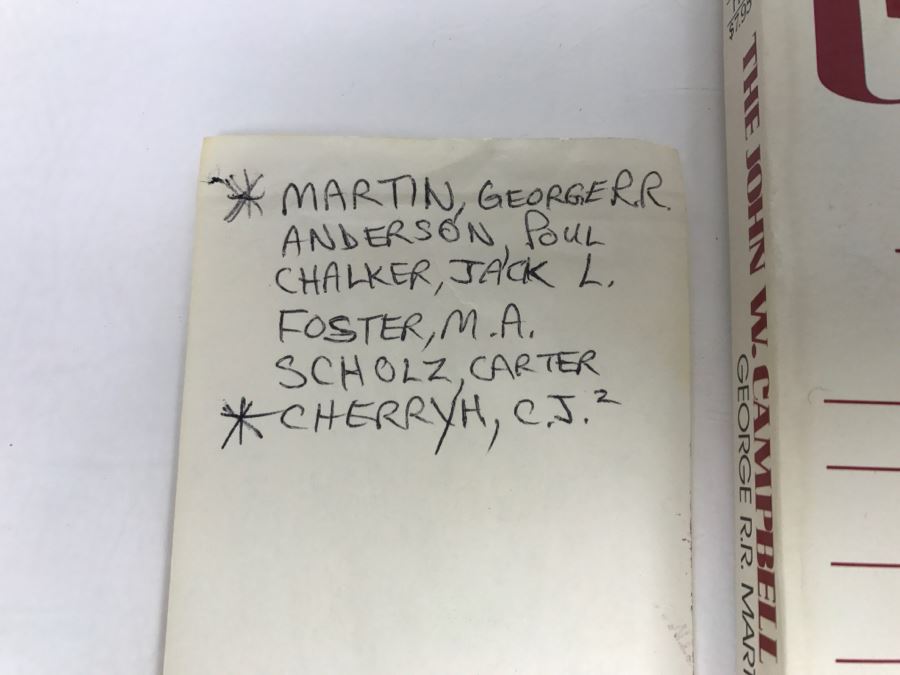 MARTIN, GEORGE R.R.
ANDERSON, POUL
CHALKER, JACK L.
FOSTER, M.A.
SCHOLZ, CARTER
CHERRYH, C.J.²
$7.95
THE JOHN W. CAMPBELL
GEORGE R.R. MART